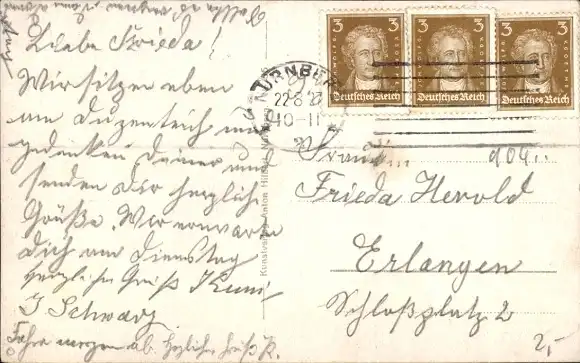 Liebe Frieda!
Wir sitzen eben
am Dutzendteich und
gedenken Deiner und
senden Dir herzliche
Grüße. Wir erwarten
Dich am Dienstag
herzliche Grüße Kuni
J Schwarz
Fahre morgen ab. Herzliche Grüße K.
NÜRNBERG
22 8
10-11
3 3
Deutsches Reich
3 3
Deutsches Reich
3 3
Deutsches Reich
Kunstverlag Anton
Fräulein
Frieda Herold
Erlangen
Schloßplatz 2
2,-